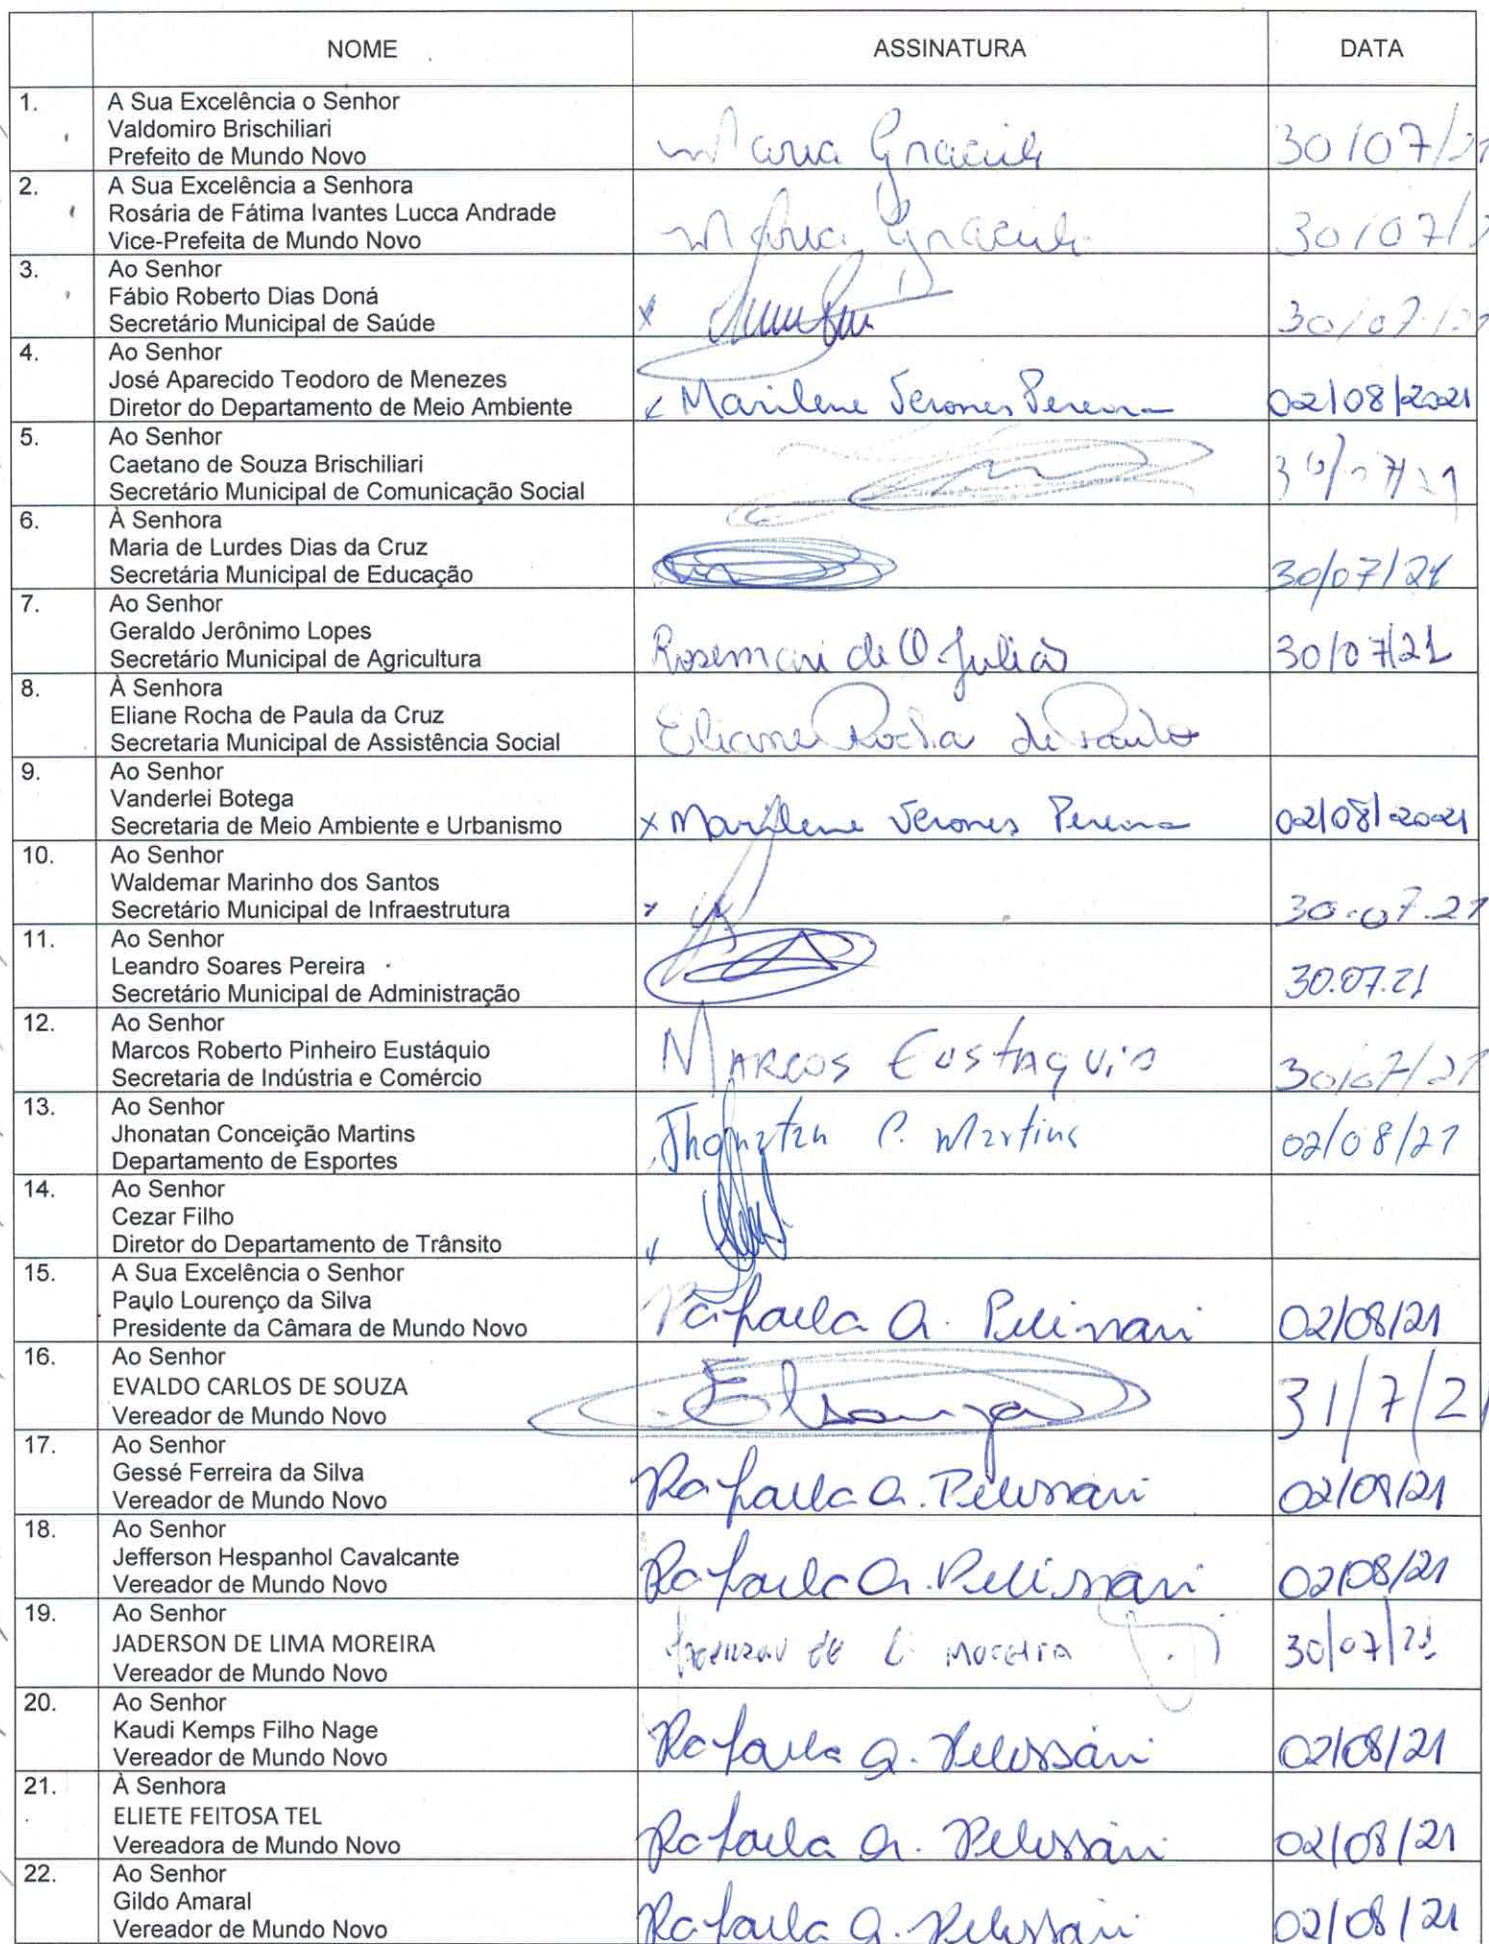 NOME ASSINATURA DATA
1. A Sua Excelência o Senhor
Valdomiro Brischiliari
Prefeito de Mundo Novo Maria Graciele 30/07/21
2. A Sua Excelência a Senhora
Rosária de Fátima Ivantes Lucca Andrade
Vice-Prefeita de Mundo Novo Maria Graciele 30/07/
3. Ao Senhor
Fábio Roberto Dias Doná
Secretário Municipal de Saúde x 30/07/21
4. Ao Senhor
José Aparecido Teodoro de Menezes
Diretor do Departamento de Meio Ambiente x Marilene Verones Pereira 02/08/2021
5. Ao Senhor
Caetano de Souza Brischiliari
Secretário Municipal de Comunicação Social
6. À Senhora
Maria de Lurdes Dias da Cruz
Secretária Municipal de Educação 30/07/21
7. Ao Senhor
Geraldo Jerônimo Lopes
Secretário Municipal de Agricultura Rosemari de O. Julião 30/07/21
8. À Senhora
Eliane Rocha de Paula da Cruz
Secretaria Municipal de Assistência Social Eliane Rocha de Paula
9. Ao Senhor
Vanderlei Botega
Secretaria de Meio Ambiente e Urbanismo x Marilene Verones Pereira 02/08/2021
10. Ao Senhor
Waldemar Marinho dos Santos
Secretário Municipal de Infraestrutura x 30.07.21
11. Ao Senhor
Leandro Soares Pereira
Secretário Municipal de Administração 30.07.21
12. Ao Senhor
Marcos Roberto Pinheiro Eustáquio
Secretaria de Indústria e Comércio Marcos Eustaquio 30/07/21
13. Ao Senhor
Jhonatan Conceição Martins
Departamento de Esportes Jhonatan C. Martins 02/08/21
14. Ao Senhor
Cezar Filho
Diretor do Departamento de Trânsito x
15. A Sua Excelência o Senhor
Paulo Lourenço da Silva
Presidente da Câmara de Mundo Novo Rafaela A. Pelissari 02/08/21
16. Ao Senhor
EVALDO CARLOS DE SOUZA
Vereador de Mundo Novo ESouza 31/7/21
17. Ao Senhor
Gessé Ferreira da Silva
Vereador de Mundo Novo Rafaela A. Pelissari 02/08/21
18. Ao Senhor
Jefferson Hespanhol Cavalcante
Vereador de Mundo Novo Rafaela A. Pelissari 02/08/21
19. Ao Senhor
JADERSON DE LIMA MOREIRA
Vereador de Mundo Novo Jaderson de L. Moreira 30/07/21
20. Ao Senhor
Kaudi Kemps Filho Nage
Vereador de Mundo Novo Rafaela A. Pelissari 02/08/21
21. À Senhora
ELIETE FEITOSA TEL
Vereadora de Mundo Novo Rafaela A. Pelissari 02/08/21
22. Ao Senhor
Gildo Amaral
Vereador de Mundo Novo Rafaela A. Pelissari 02/08/21